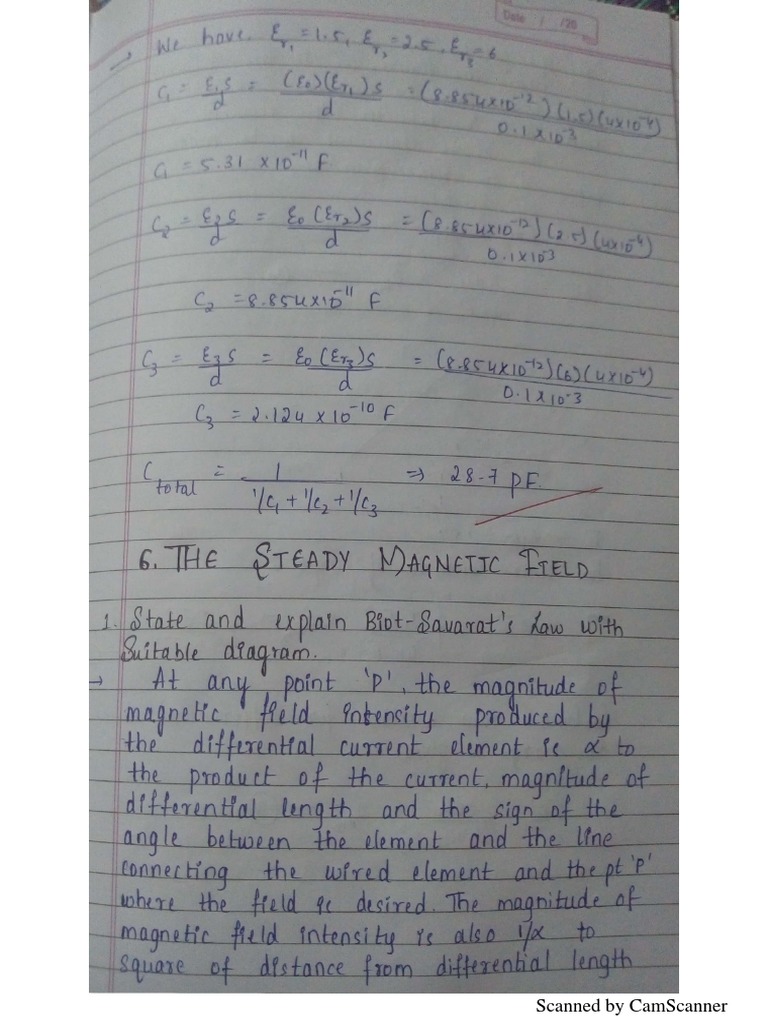 Date / /20
→ We have, εr1 = 1.5, εr2 = 2.5, εr3 = 6
C1 = ε1s/d = (ε0)(εr1)s/d = (8.854x10^-12)(1.5)(4x10^-4)/0.1x10^-3
C1 = 5.31 x10^-11 F
C2 = ε2s/d = ε0(εr2)s/d = (8.854x10^-12)(2.5)(4x10^-4)/0.1x10^-3
C2 = 8.854x10^-11 F
C3 = ε3s/d = ε0(εr3)s/d = (8.854x10^-12)(6)(4x10^-4)/0.1x10^-3
C3 = 2.124 x10^-10 F
Ctotal = 1/(1/C1 + 1/C2 + 1/C3) => 28.7 pF.
6. THE STEADY MAGNETIC FIELD
1. State and explain Biot-Savarat's Law with
Suitable diagram.
→ At any point 'P', the magnitude of
magnetic field intensity produced by
the differential current element is α to
the product of the current, magnitude of
differential length and the sign of the
angle between the element and the line
connecting the wired element and the pt 'P'
where the field is desired. The magnitude of
magnetic field intensity is also 1/α to
square of distance from differential length
Scanned by CamScanner